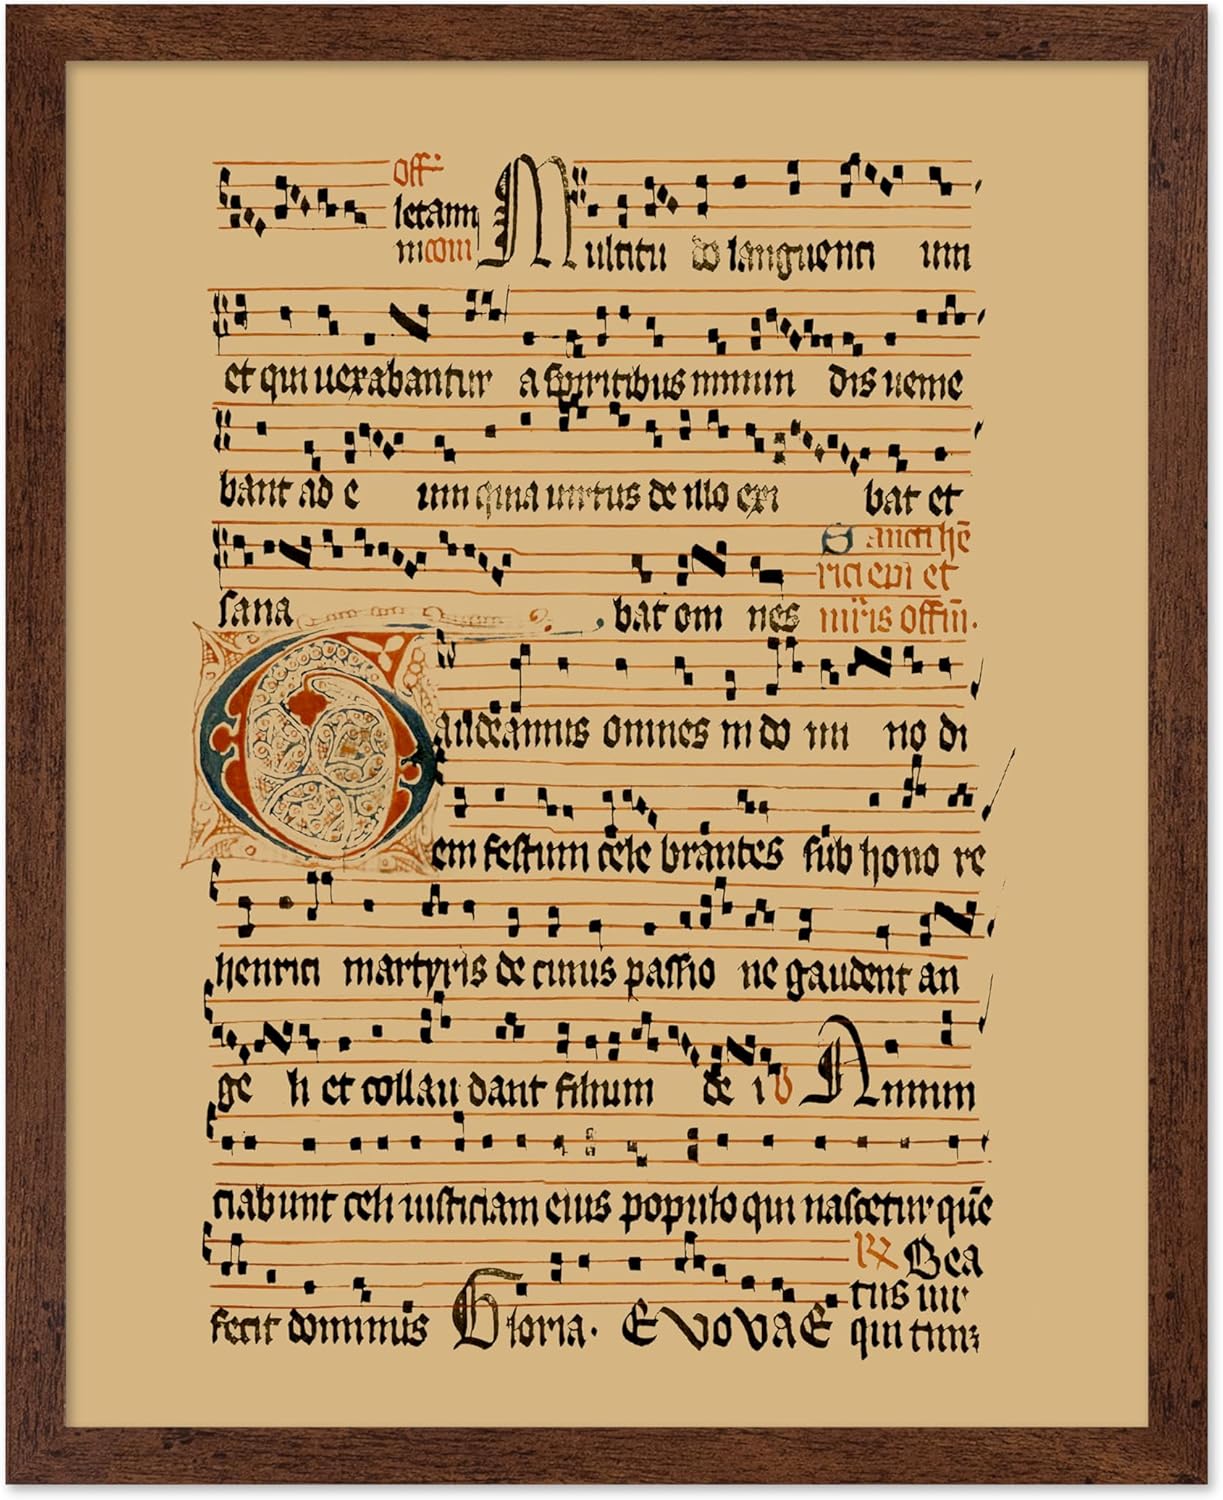 Off
letamini com Multitudo languenti um
et qui uexabantur a spiritibus inmun dis uenie
bant ad e um quia uirtus de illo exi bat et
sana bat om nes
Sancti hē
rici epi et
mr̄is offm̄.
Gaudeamus omnes in do mi no di
em festum cele brantes sub hono re
henrici martyris de cuius passio ne gaudent an
ge li et collau dant filium de i V Annun
ciabunt celi iusticiam eius populo qui nascetur quē
fecit dominus Gloria. EVOVAE
R Bea
tus uir
qui tim